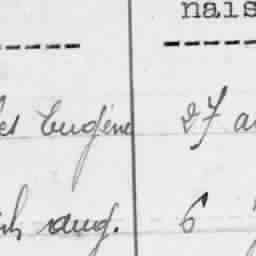 nais
es Eugène 27 a
ich aug. 6